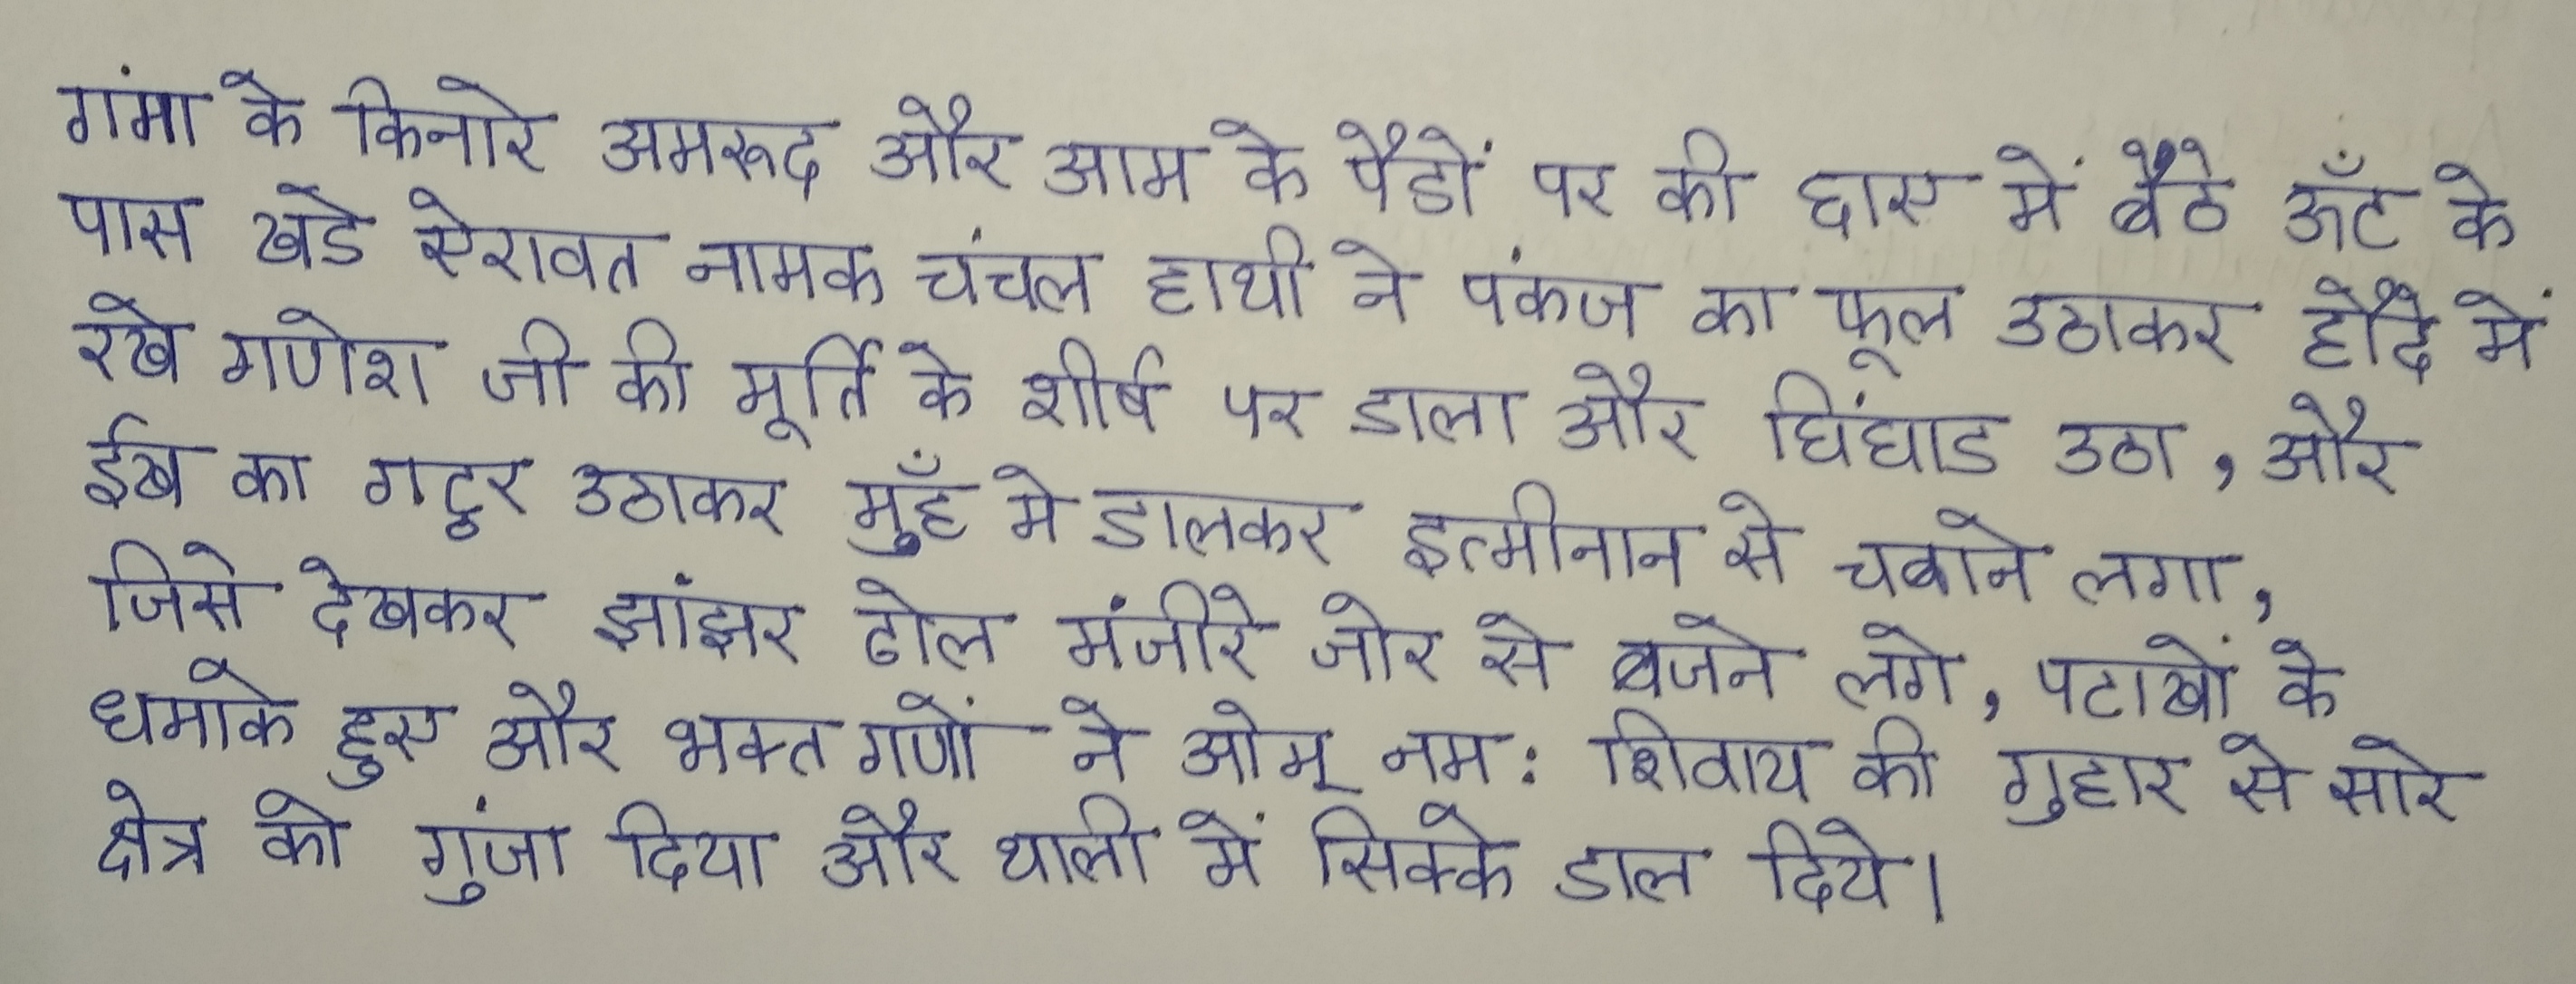 गंगा के किनारे अमरूद और आम के पैडों पर की छाए में बैठे ऊँट के
पास खडे ऐरावत नामक चंचल हाथी ने पंकज का फूल उठाकर हौदे में
रखे गणेश जी की मूर्ति के शीर्ष पर डाला और चिंघाड उठा, और
ईख का गट्ठर उठाकर मुँह मे डालकर इत्मीनान से चबाने लगा,
जिसे देखकर झांझर ढोल मंजीरे जोर से बजने लगे, पटाखों के
धमाके हुए और भक्त गणों ने ओम् नम: शिवाय की गुहार से सारे
क्षेत्र को गुंजा दिया और थाली में सिक्के डाल दिये।